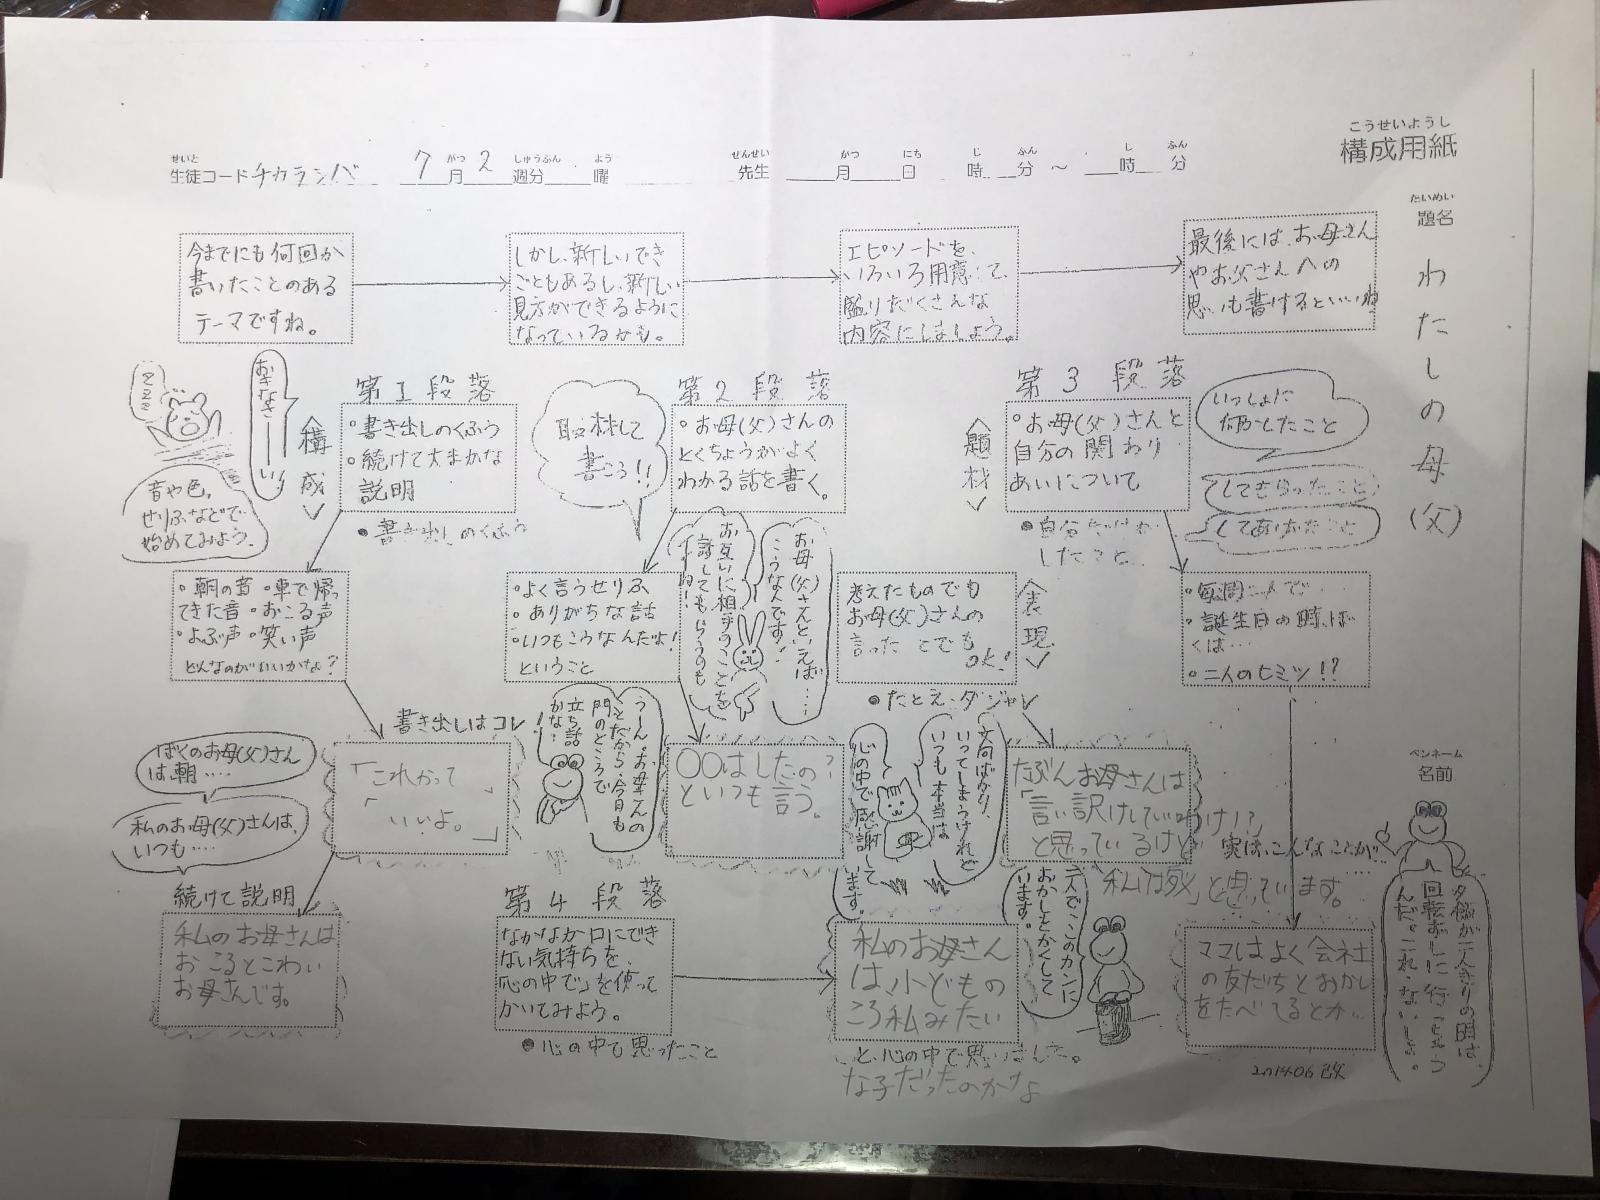 こうせいようし
構成用紙
せいと
生徒コード チカラシバ
がつ しゅうぶん よう
7月2週分 曜
せんせい
先生
がつ にち じ ふん し ふん
月 日 時 分 ～ 時 分
たいめい
題名
わたしの母(父)
ペンネーム
名前
今までにも何回か
書いたことのある
テーマですね。
しかし、新しいでき
ごともあるし、新しい
見方ができるように
なっているかも。
エピソードを、
いろいろ用意して、
盛りだくさんな
内容にしましょう。
最後には、お母さん
やお父さんへの
思いも書けるといいね
おきなさーーい!
ZZZZ
〈構成〉
音や色、
せりふなどで
始めてみよう。
第1段落
・書き出しのくふう
・続けて大まかな
説明
●書き出しのくふう
・朝の音 ・車で帰っ
てきた音 ・おこる声
・よぶ声 ・笑い声
どんなのがいいかな?
書き出しはコレ!
「これかって」
「いいよ。」
ぼくのお母(父)さん
は、朝‥‥
私のお母(父)さんは、
いつも‥‥
続けて説明
私のお母さんは
おこるとこわい
お母さんです。
取材して
書こう!!
第2段落
・お母(父)さんの
とくちょうがよく
わかる話を書く。
・よく言うせりふ
・ありがちな話
・いつもこうなんだよ!
ということ
お母(父)さんといえば‥‥
こうなんです!
お互いに相手のことを
話してもらうのも
いいね!
うーん。お母さんの
ことだから、今日も
門のところで
立ち話
かな?
〇〇はしたの?
といつも言う。
〈題材〉
第3段落
・お母(父)さんと
自分の関わり
あいについて
●自分だけが
したこと
いっしょに
何かしたこと
してもらったこと
してあげたこと
・毎週二人で‥‥
・誕生日の時、ぼ
くは‥‥
・二人のヒミツ!?
考えたものでも
お母(父)さんの
言ったことでも
OK!
〈表現〉
●たとえ・ダジャレ
文句ばかり、
いってしまうけれど
いつも本当は
心の中で感謝して
います。
たぶんお母さんは
「言い訳けしていいわけ!?」
と思っているけど
実は、こんなことが‥‥
「私は死」と思っています。
二人でこのカンに
おかしをかくして
います。
ママはよく会社
の友だちとおかし
をたべてるとか‥
夕飯が二人きりの時は、
回転ずしに行っちゃう
んだ。これ、ないしょ。
第4段落
なかなか口にでき
ない気持ちを、
「心の中で」を使って
かいてみよう。
●心の中で思ったこと
私のお母さん
は、小どもの
ころ私みたい
な子だったのかな
と、心の中で思いました。
201406改